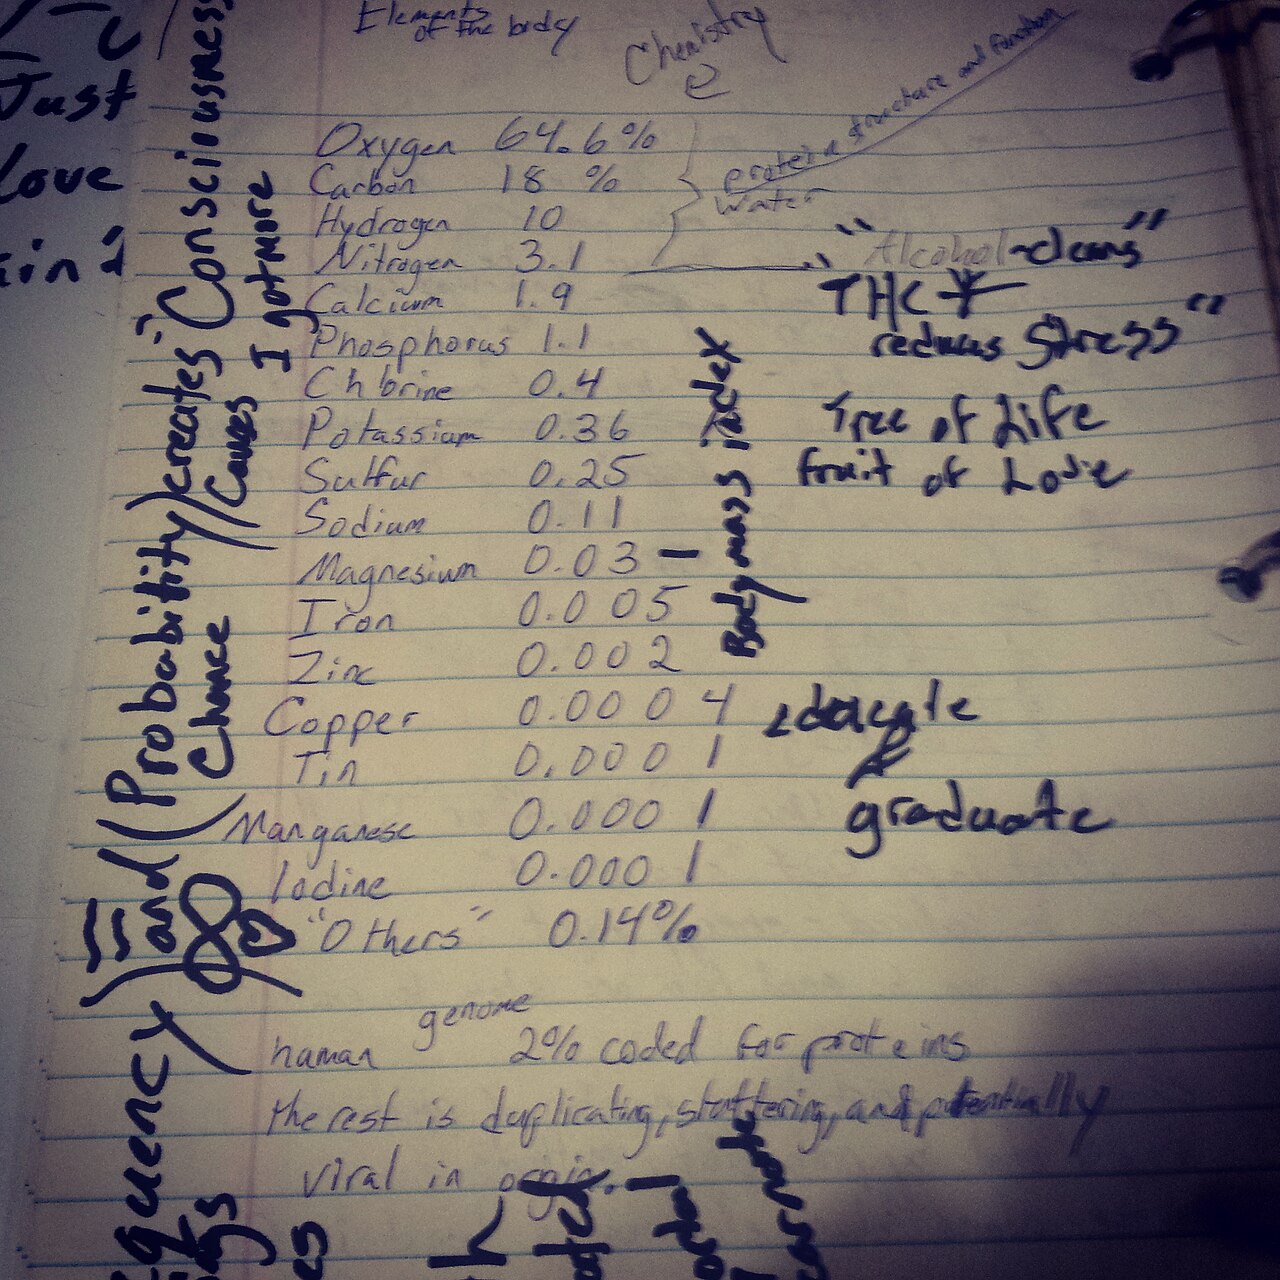 Elements
of the body
Chemistry
protein structure and function
Water
Oxygen 64.6%
Carbon 18 %
Hydrogen 10
Nitrogen 3.1
Calcium 1.9
Phosphorus 1.1
Chlorine 0.4
Potassium 0.36
Sulfur 0.25
Sodium 0.11
Magnesium 0.03 –
Iron 0.005
Zinc 0.002
Copper 0.0004
Tin 0.0001
Manganese 0.0001
Iodine 0.0001
"Others" 0.14%
genome
human 2% coded for proteins
the rest is duplicating, stuttering, and potentially
viral in origin.
"Alcohol-cleans"
THC
reduces Stress"
Tree of Life
fruit of Love
Body mass index
educate
&
graduate
and (Probability) creates "Consciousness
Chance
Causes
I got more
Just
Love